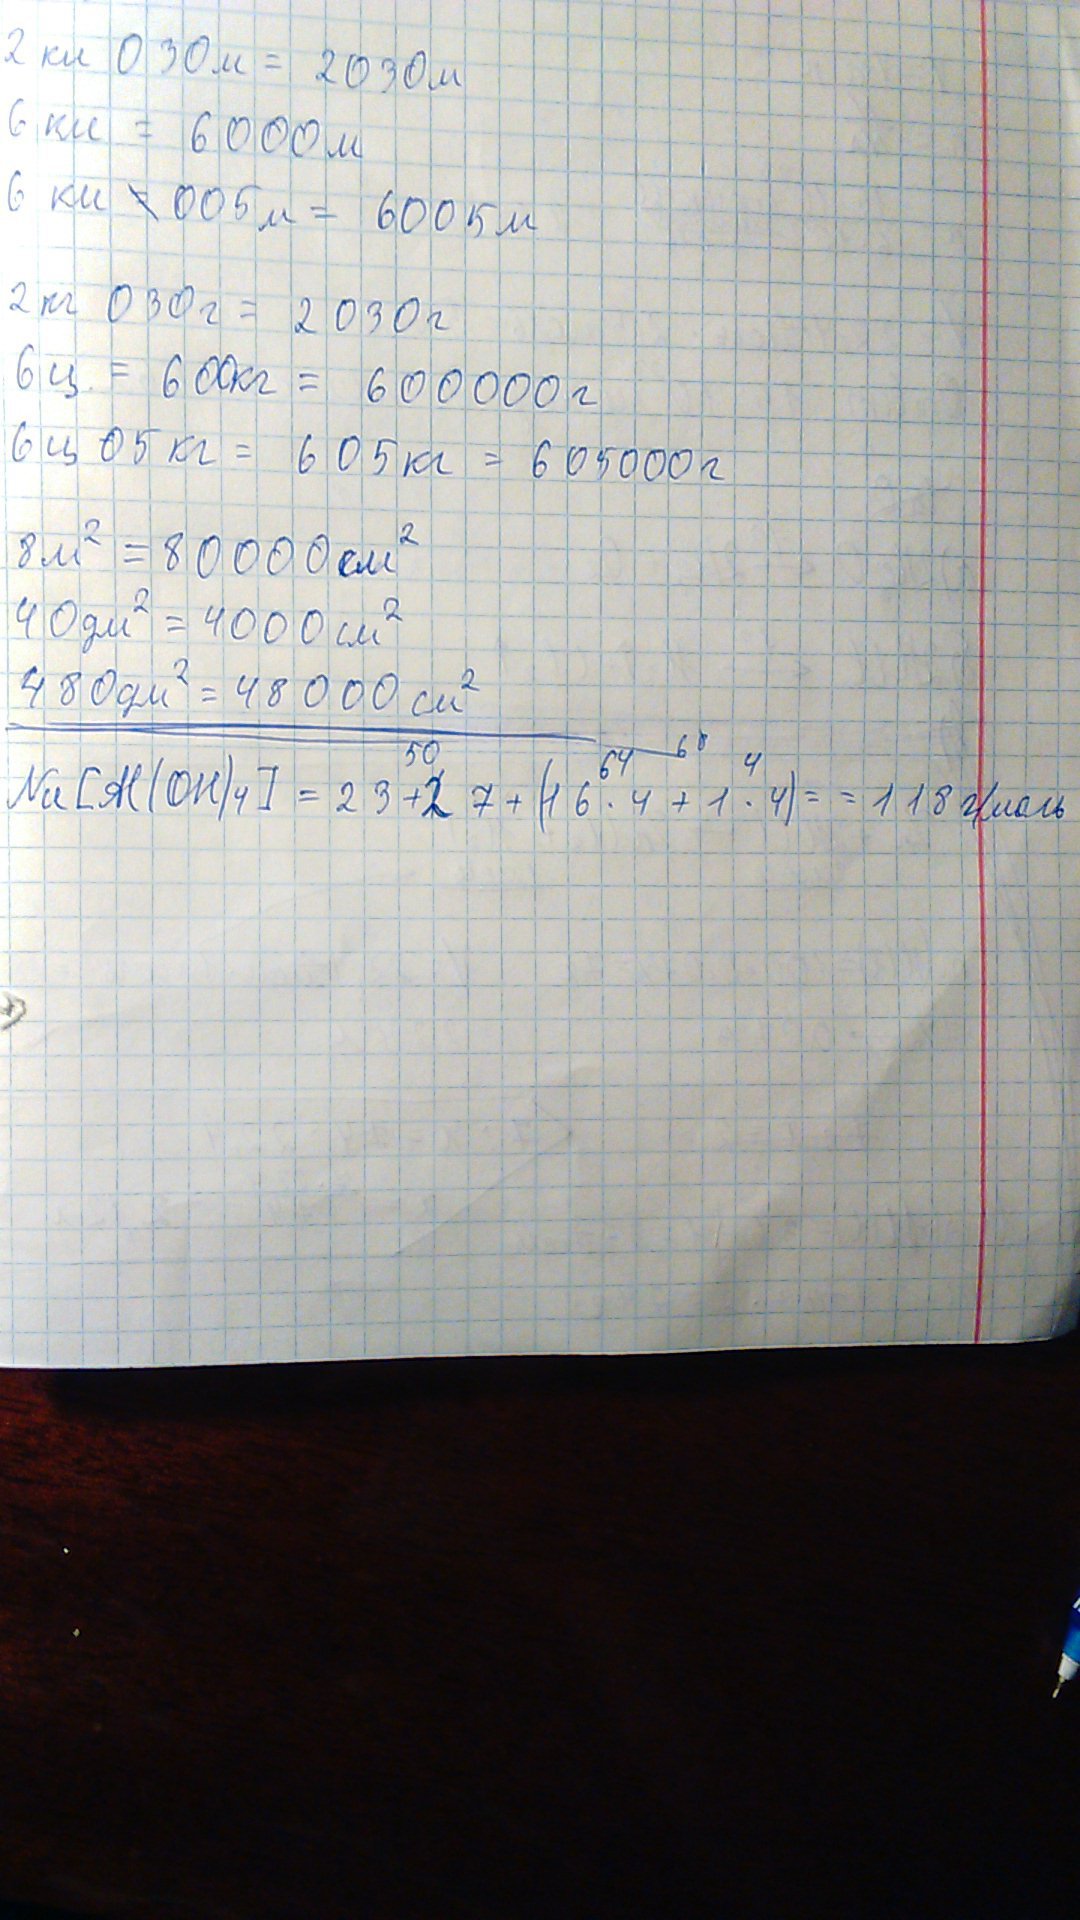 2 км 030м = 2030м
6 км = 6000м
6 км 005м = 6005м
2кг 030г = 2030г
6ц = 600кг = 600000г
6ц 05кг = 605кг = 605000г
8м² = 80000см²
40дм² = 4000см²
480дм² = 48000см²
50 64 68 4
Na[Al(OH)4] = 23+27+(16·4+1·4)= =118г/моль